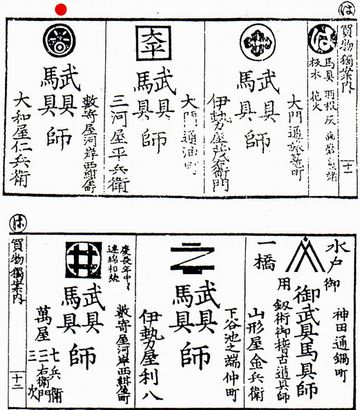 は
買物獨案内
十二
は
馬具
花火
大門通旅籠町
武具
馬具
師
大門通油町
大平
武具
馬具
師
三河屋平兵衛
數寄屋河岸西紺屋町
武具
馬具
師
大和屋仁兵衛
神田通鍋町
水戸
御用
一橋
御武具馬具師
釼術御稽古道具師
山形屋金兵衛
下谷池之端仲町
武具
馬具
師
伊勢屋利八
慶長年中ヨリ
連綿相続
數寄屋河岸西紺屋町
井
武具
馬具
師
萬屋
七兵衛
三右衛門
三次
は
買物獨案内
十二